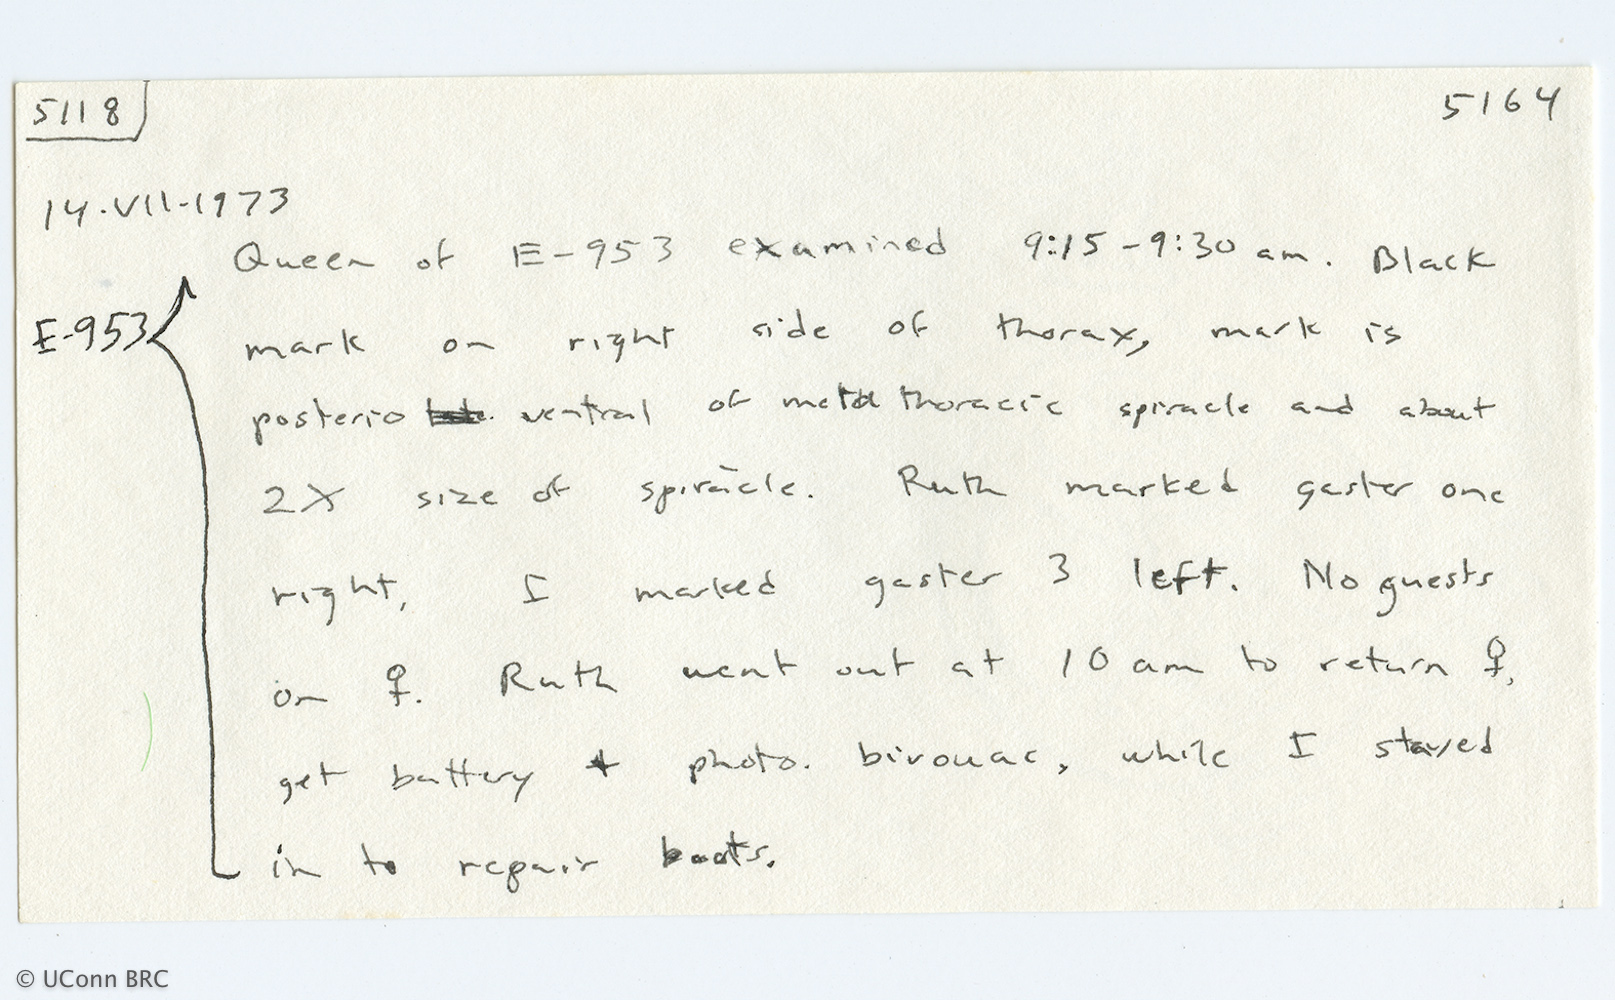 5118
5164
14.VII-1973
Queen of E-953 examined 9:15-9:30 am. Black
E-953
mark on right side of thorax, mark is
posterio ventral of metathoracic spiracle and about
2X size of spiracle. Ruth marked gaster one
right, I marked gaster 3 left. No guests
on ♀. Ruth went out at 10 am to return ♀,
get battery + photo. bivouac, while I stayed
in to repair boots.
© UConn BRC